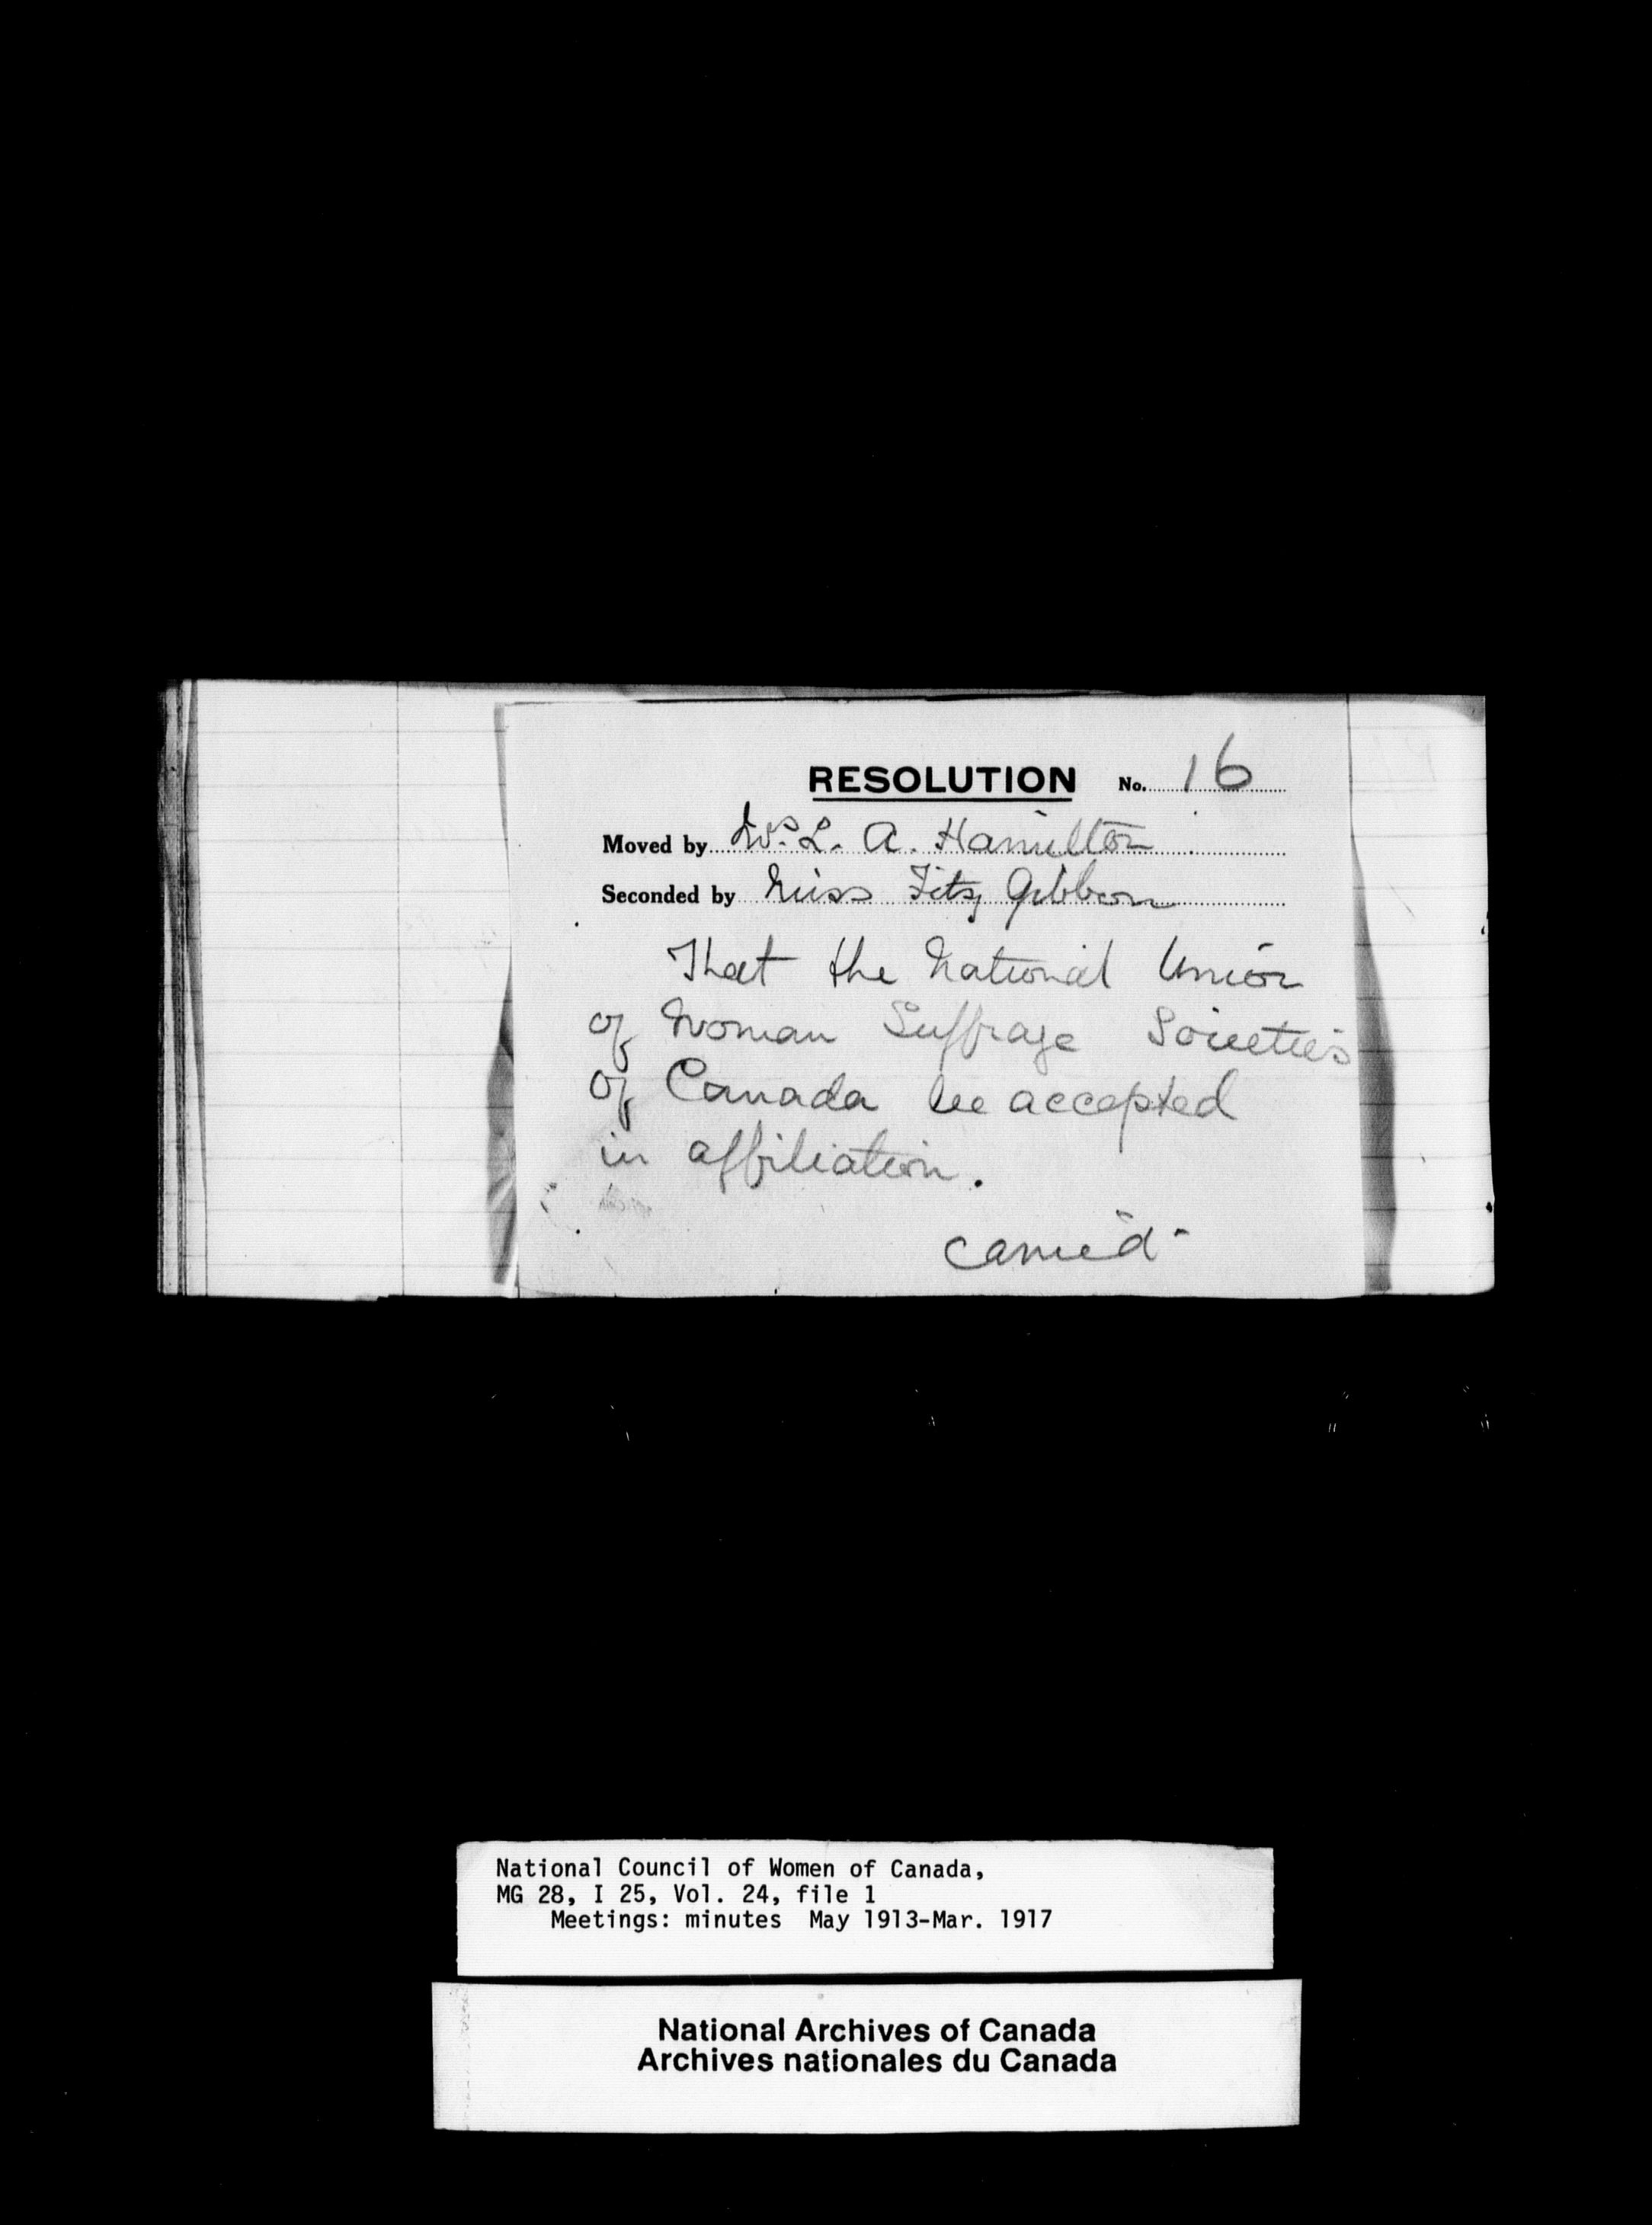 RESOLUTION No. 16
Moved by Mrs. L. A. Hamilton
Seconded by Miss Fitz Gibbon
That the National Union
of Woman Suffrage Societies
of Canada be accepted
in affiliation.
carried-
National Council of Women of Canada,
MG 28, I 25, Vol. 24, file 1
Meetings: minutes May 1913-Mar. 1917
National Archives of Canada
Archives nationales du Canada